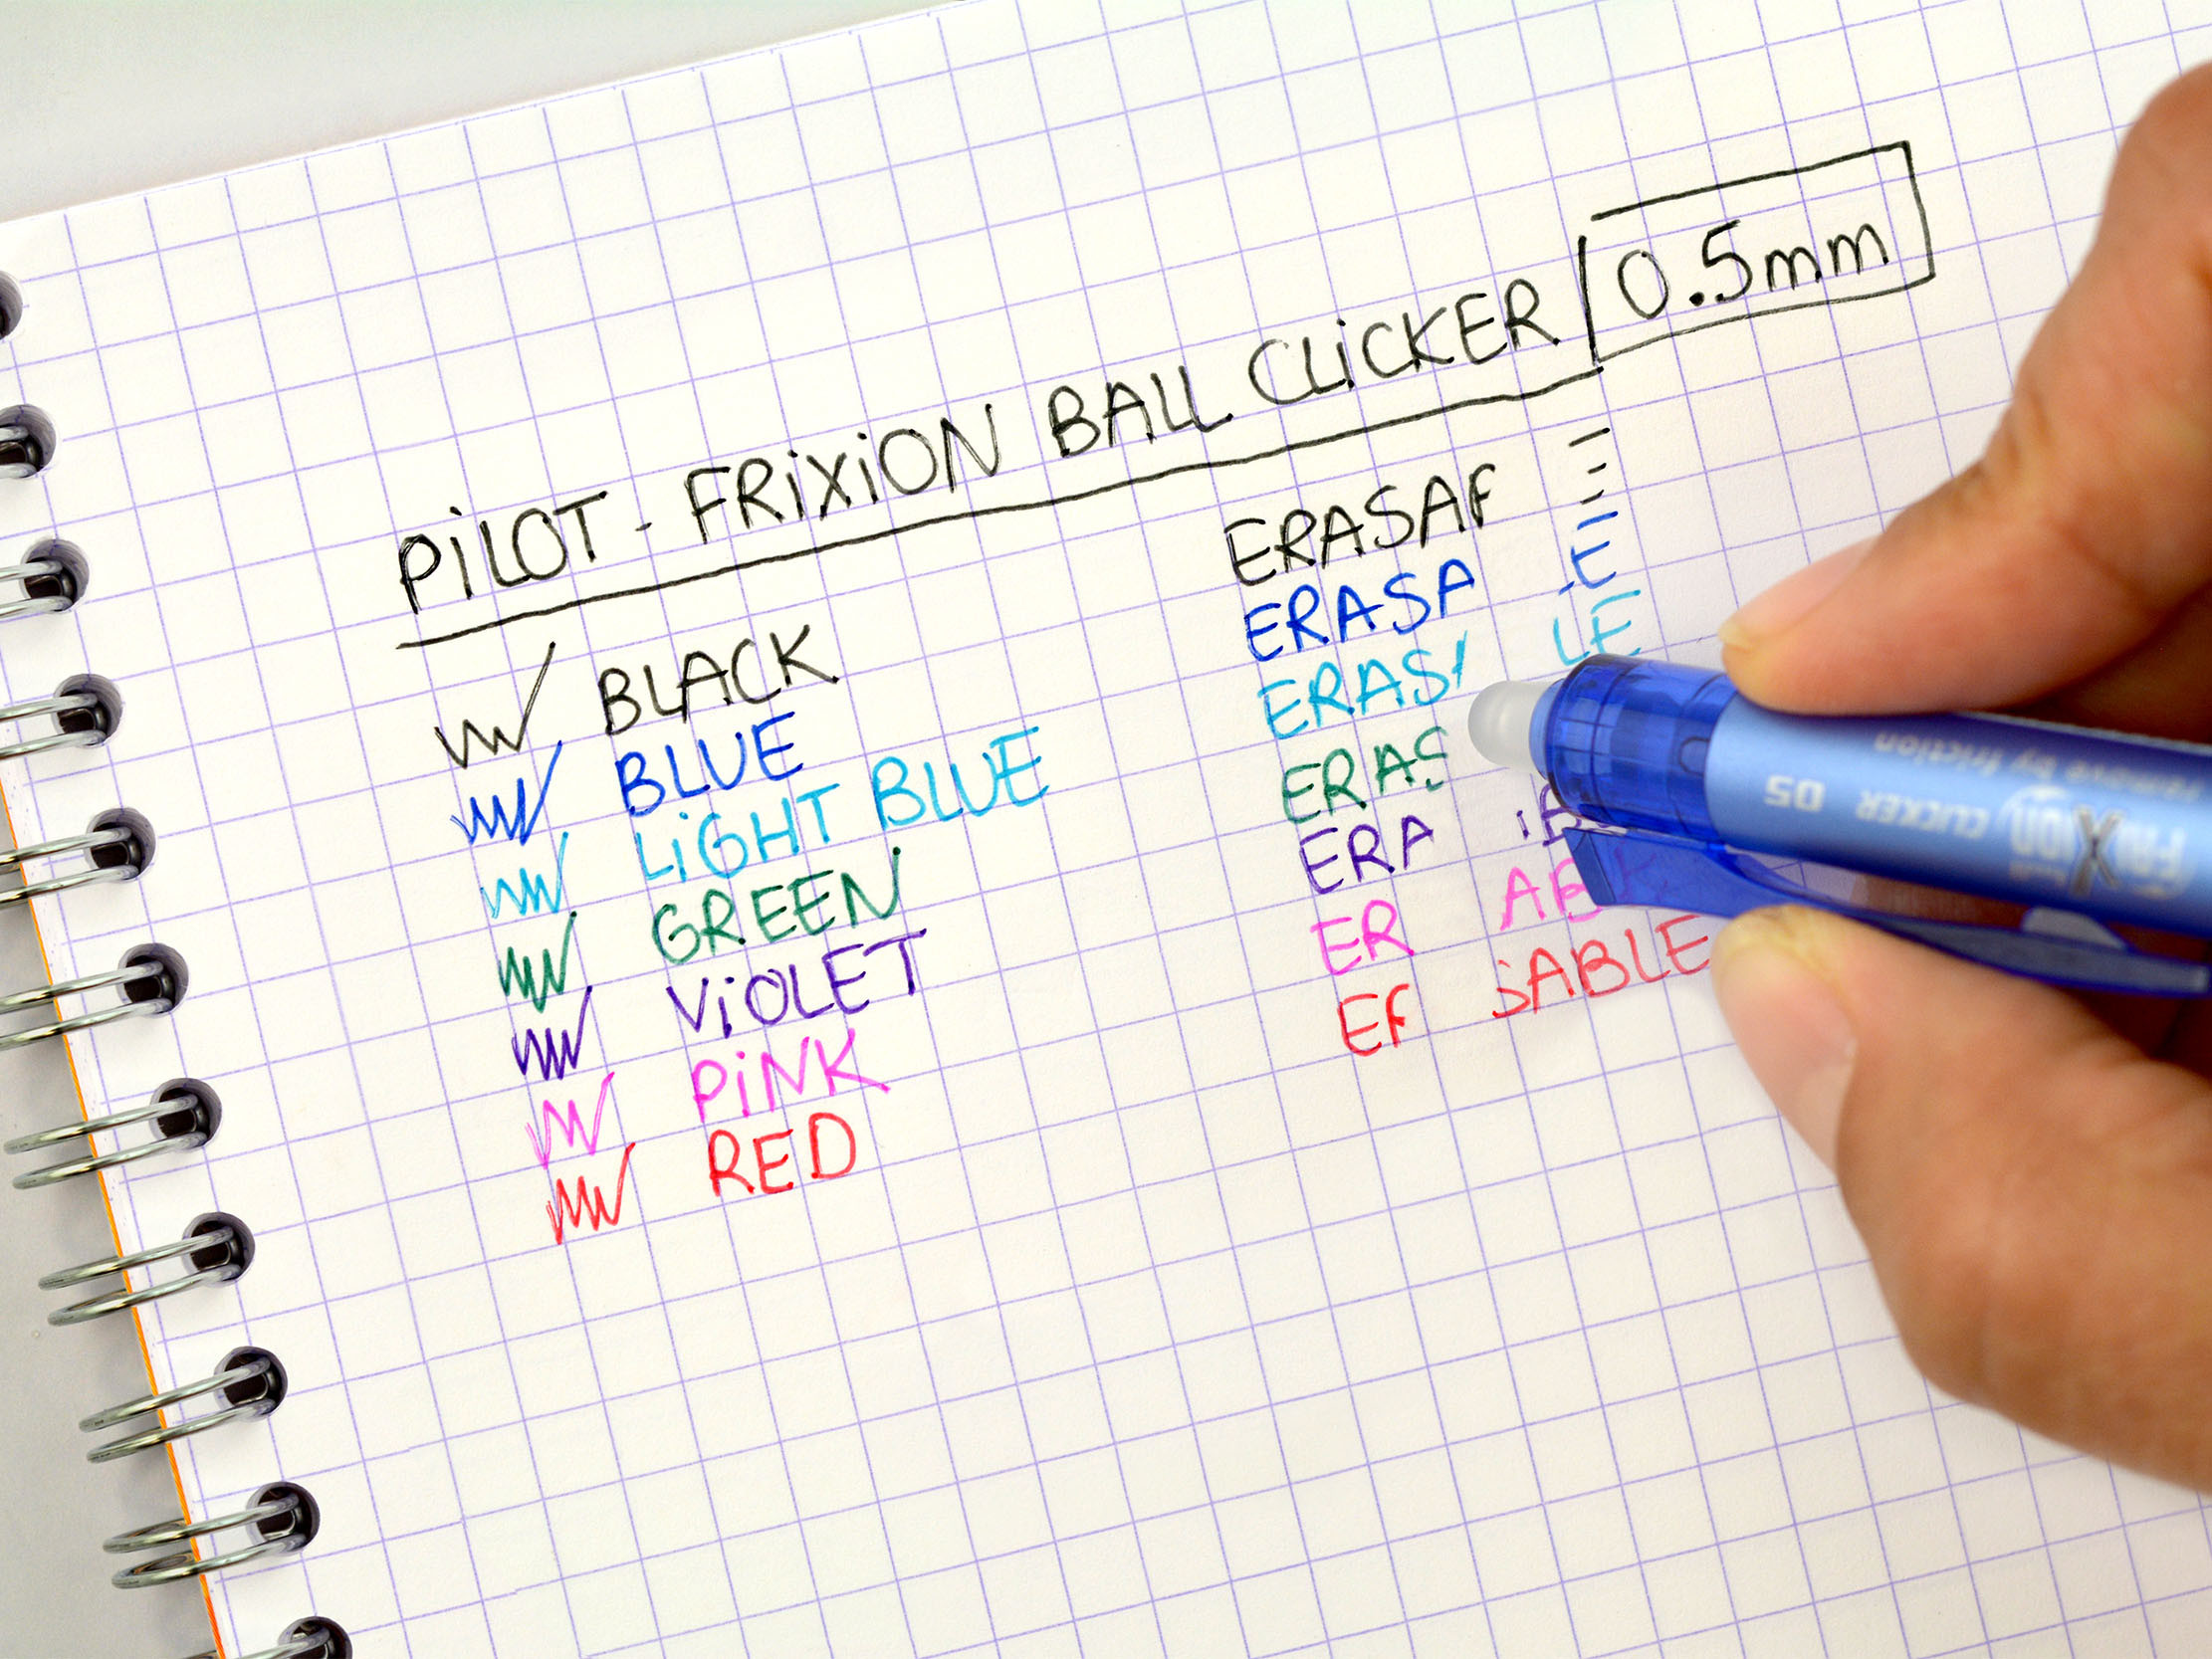 PiLOT - FRiXiON BALL CLiCKER 0.5mm
BLACK
BLUE
LiGHT BLUE
GREEN
ViOLET
PiNK
RED
ERASA E
ERASA LE
ERAS
ERA B
ER AB
E SABLE
FRiXion CLICKER 05
remove by friction